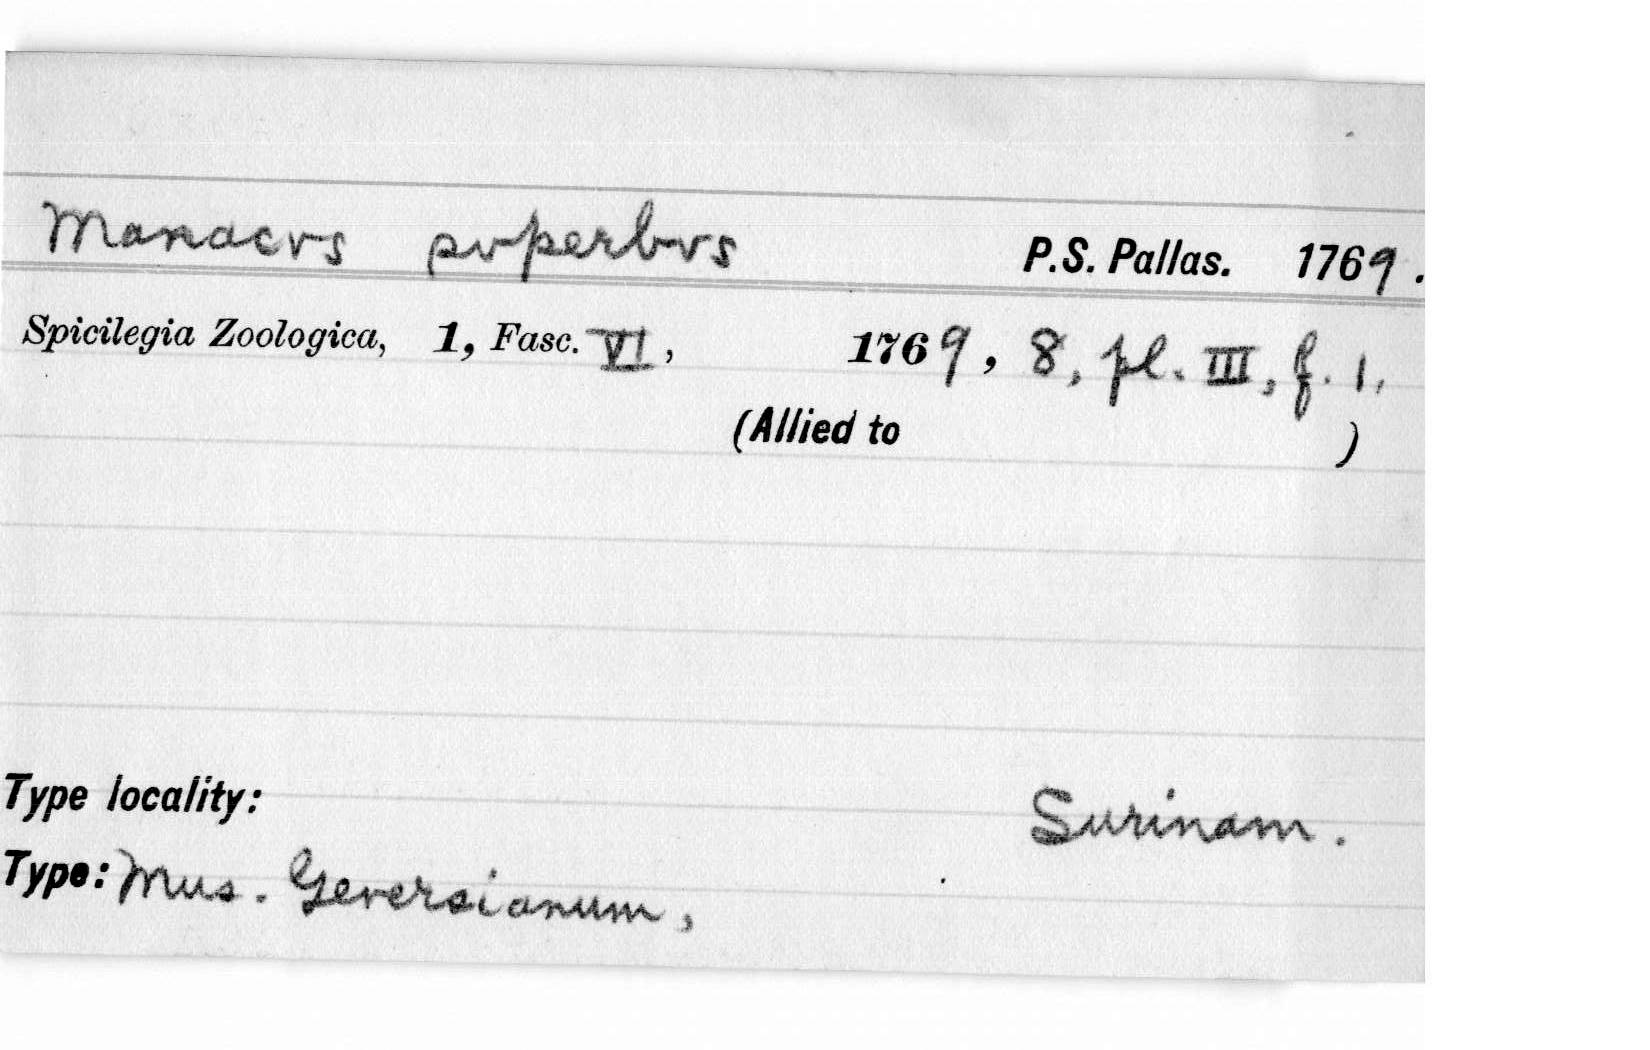 Manacvs svperbvs P.S. Pallas. 1769.
Spicilegia Zoologica, 1, Fasc. VI, 1769, 8, pl. III, f. 1.
(Allied to )
Type locality: Surinam.
Type: Mus. Geversianum,